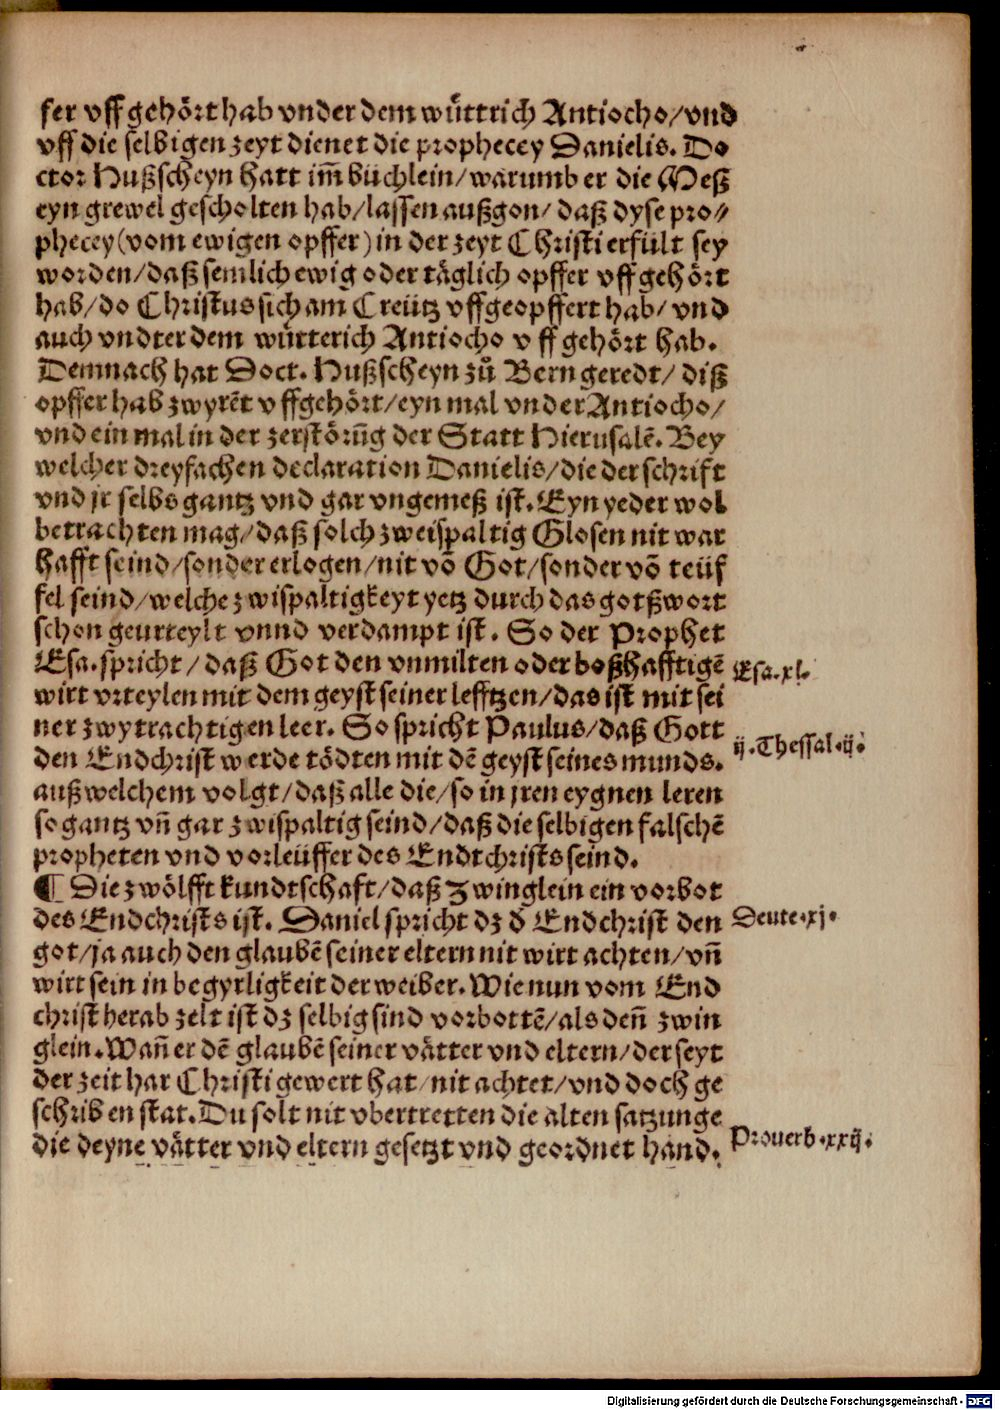 fer vff gehört hab vnder dem wůttrich Antiocho/vnd
vff die selbigen zeyt dienet die prophecey Danielis. Do
ctor Hußscheyn hatt im̃ büchlein/warumb er die Meß
eyn grewel gescholten hab/lassen außgon/ daß dyse pro⸗
phecey (vom ewigen opffer) in der zeyt Christi erfült sey
worden/daß semlich ewig oder täglich opffer vff gehört
hab/do Christus sich am Creütz vffgeopffert hab/ vnd
auch vndter dem wůtterich Antiocho v ff gehört hab.
Demnach hat Doct. Hußscheyn zů Bern geredt/ diß
opffer hab zwyrẽt v ffgehört/eyn mal vnder Antiocho/
vnd ein mal in der zerstörũg der Statt Hierusalẽ. Bey
welcher dreyfachen declaration Danielis/die der schrift
vnd jr selbs gantz vnd gar vngemeß ist. Eyn yeder wol
betrachten mag/daß solch zweispaltig Glosen nit war
hafft seind/sonder erlogen/nit võ Got/sonder võ teüf
fel seind/welche zwispaltigkeyt yetz durch das gotßwort
schon geurteylt vnnd verdampt ist. So der Prophet
Esa. spricht/daß Got den vnmilten oder boßhafftigẽ
wirt vrteylen mit dem geyst seiner lefftzen/das ist mit sei
ner zwytrachtigen leer. So spricht Paulus/daß Gott
den Endchrist werde tödten mit dẽ geyst seines munds.
auß welchem volgt/daß alle die/so in jren eygnen leren
so gantz vñ gar zwispaltig seind/daß die selbigen falschẽ
propheten vnd vorleüffer des Endtchrists seind.
¶ Die zwölfft kundtschaft/daß Zwinglein ein vorbot
des Endchrists ist. Daniel spricht dz d̕ Endchrist den
got/ja auch den glaubẽ seiner eltern nit wirt achten/vñ
wirt sein in begyrligkeit der weiber. Wie nun vom End
christ herab zelt ist dz selbig sind vorbottẽ/als deñ zwin
glein. Wañ er dẽ glaubẽ seiner vätter vnd eltern/der seyt
der zeit har Christi gewert hat/nit achtet/vnd doch ge
schriben stat. Du solt nit vbertretten die alten satzunge
die deyne vätter vnd eltern gesetzt vnd geordnet hand.
Esa.xl.
ij.Thessal.ij.
Deute.xj.
Prouerb.xxij.
Digitalisierung gefördert durch die Deutsche Forschungsgemeinschaft - DFG